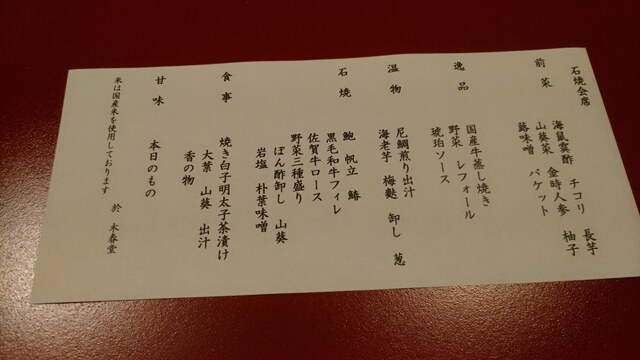 石焼会席
前菜
海鼠霙酢 チコリ 長芋
山葵菜 金時人参 柚子
蕗味噌 バケット
逸品
国産牛蒸し焼き
野菜 レフォール
琥珀ソース
温物
尼鯛煎り出汁
海老芋 梅麩 卸し 葱
石焼
鮑 帆立 鰆
黒毛和牛フィレ
佐賀牛ロース
野菜三種盛り
ぽん酢卸し 山葵
岩塩 朴葉味噌
食事
焼き白子明太子茶漬け
大葉 山葵 出汁
香の物
甘味
本日のもの
米は国産米を使用しております 於 木春堂